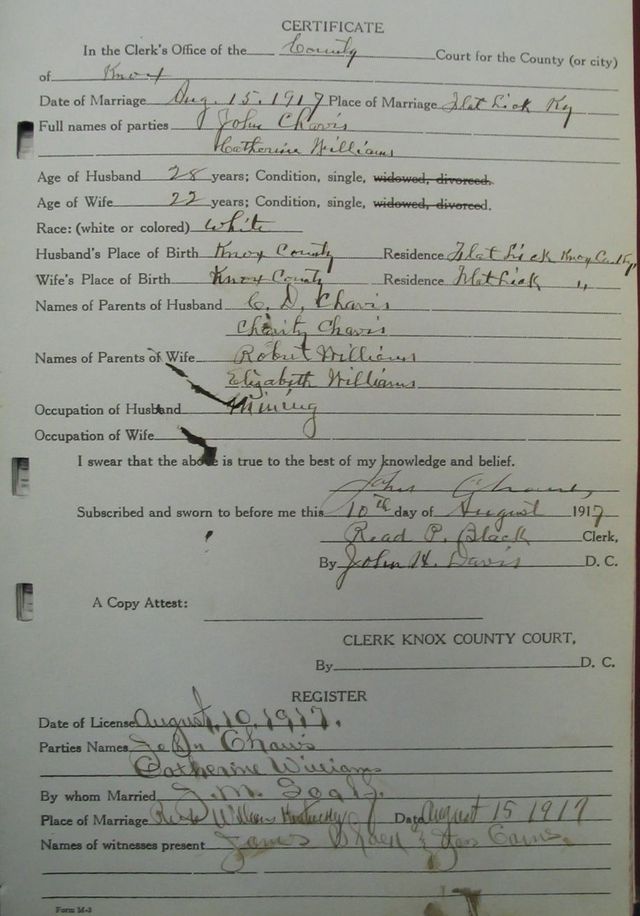 CERTIFICATE
In the Clerk's Office of the County Court for the County (or city)
of Knox
Date of Marriage Aug. 15. 1917 Place of Marriage Flat Lick Ky
Full names of parties John Chavis
Catherine Williams
Age of Husband 28 years; Condition, single, widowed, divorced.
Age of Wife 22 years; Condition, single, widowed, divorced.
Race: (white or colored) White
Husband's Place of Birth Knox County Residence Flat Lick Knox Co Ky,
Wife's Place of Birth Knox County Residence Flat Lick "
Names of Parents of Husband C. D. Chavis
Charity Chavis
Names of Parents of Wife Robert Williams
Elizabeth Williams
Occupation of Husband Mining
Occupation of Wife
I swear that the above is true to the best of my knowledge and belief.
John Chavis
Subscribed and sworn to before me this 10th day of August 1917
Read P. Black Clerk,
By John H. Davis D. C.
A Copy Attest:
CLERK KNOX COUNTY COURT,
By D. C.
REGISTER
Date of License August, 10, 1917.
Parties Names John Chavis
Catherine Williams
By whom Married J. M.
Place of Marriage Williams Kentucky Date August 15 1917
Names of witnesses present James &
Form M-3